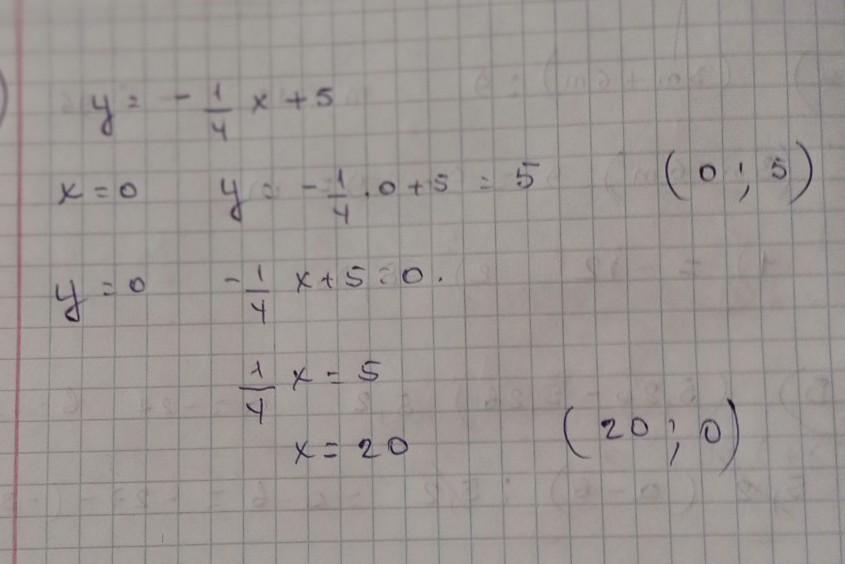 y = - 1/4 x + 5
x = 0 y = - 1/4 · 0 + 5 = 5 (0 ; 5)
y = 0 - 1/4 x + 5 = 0.
1/4 x = 5
x = 20 (20 ; 0)